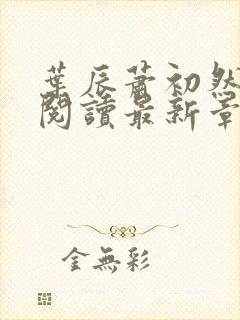 葉辰蕭初然
閱讀最新章
金無彩